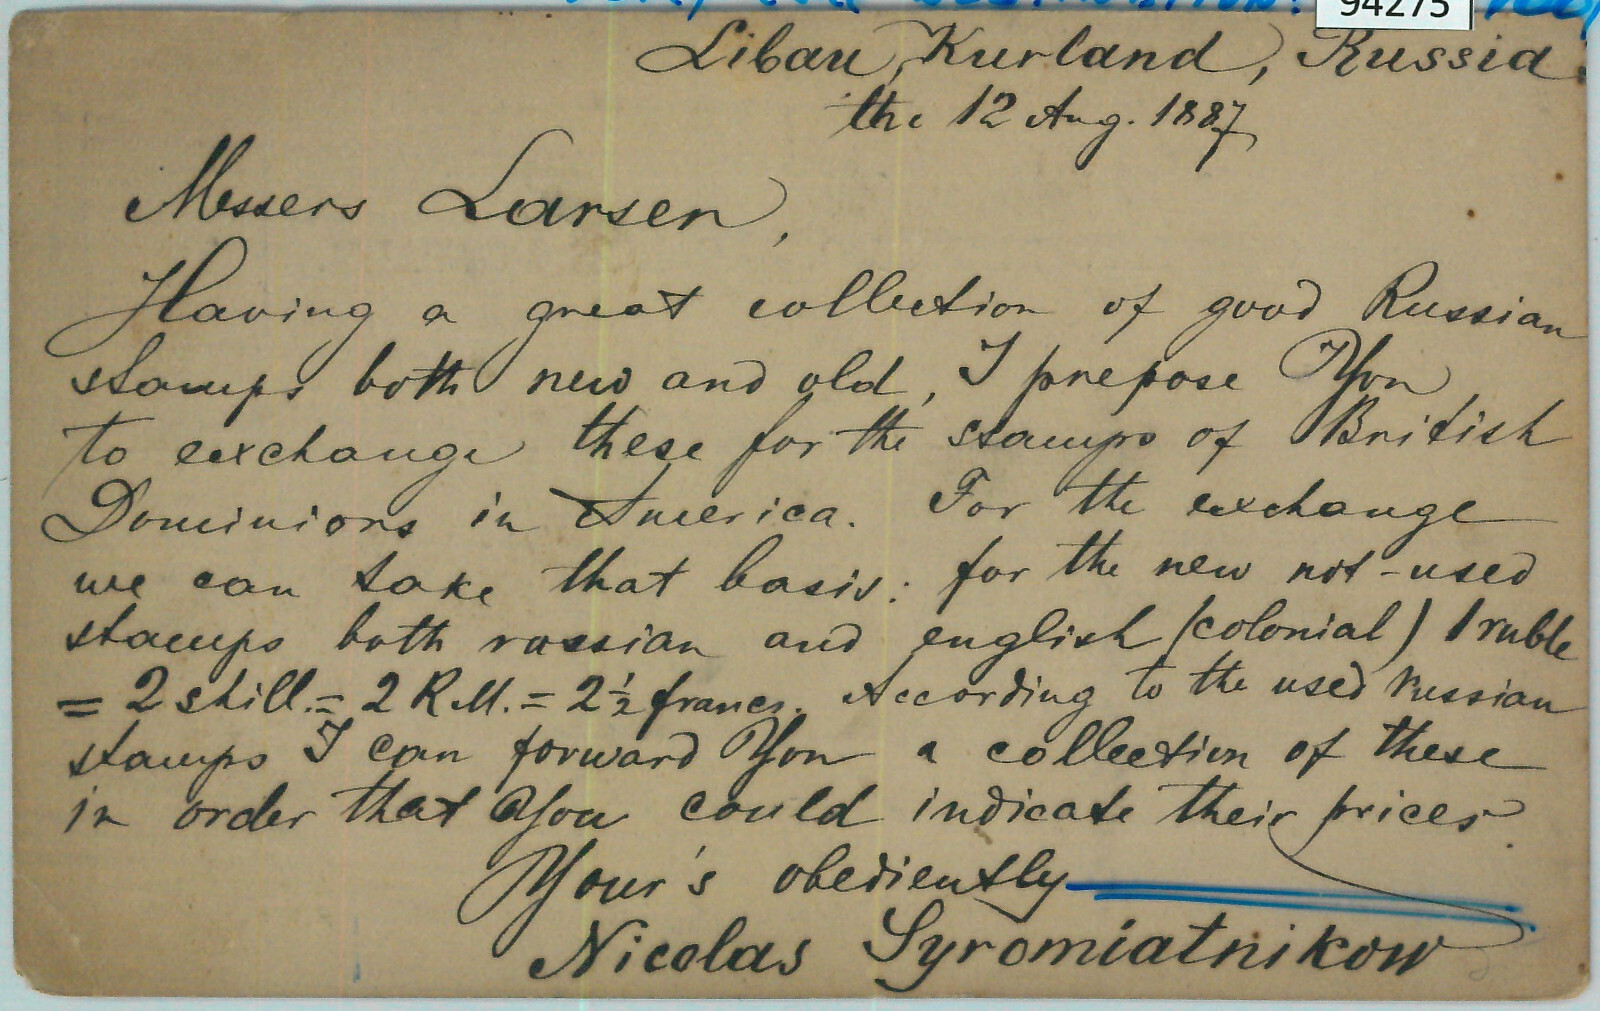 94275
Libau, Kurland, Russia.
the 12 Aug. 1887
Messers Larsen,
Having a great collection of good Russian
stamps both new and old, I prepose You
to exchange these for the stamps of British
Dominions in America. For the exchange
we can take that basis: for the new not-used
stamps both russian and english (colonial) 1 ruble
= 2 shill. = 2 R.M. = 2½ francs. According to the used russian
stamps I can forward You a collection of these
in order that You could indicate their prices.
Your's obediently
Nicolas Syromiatnikow